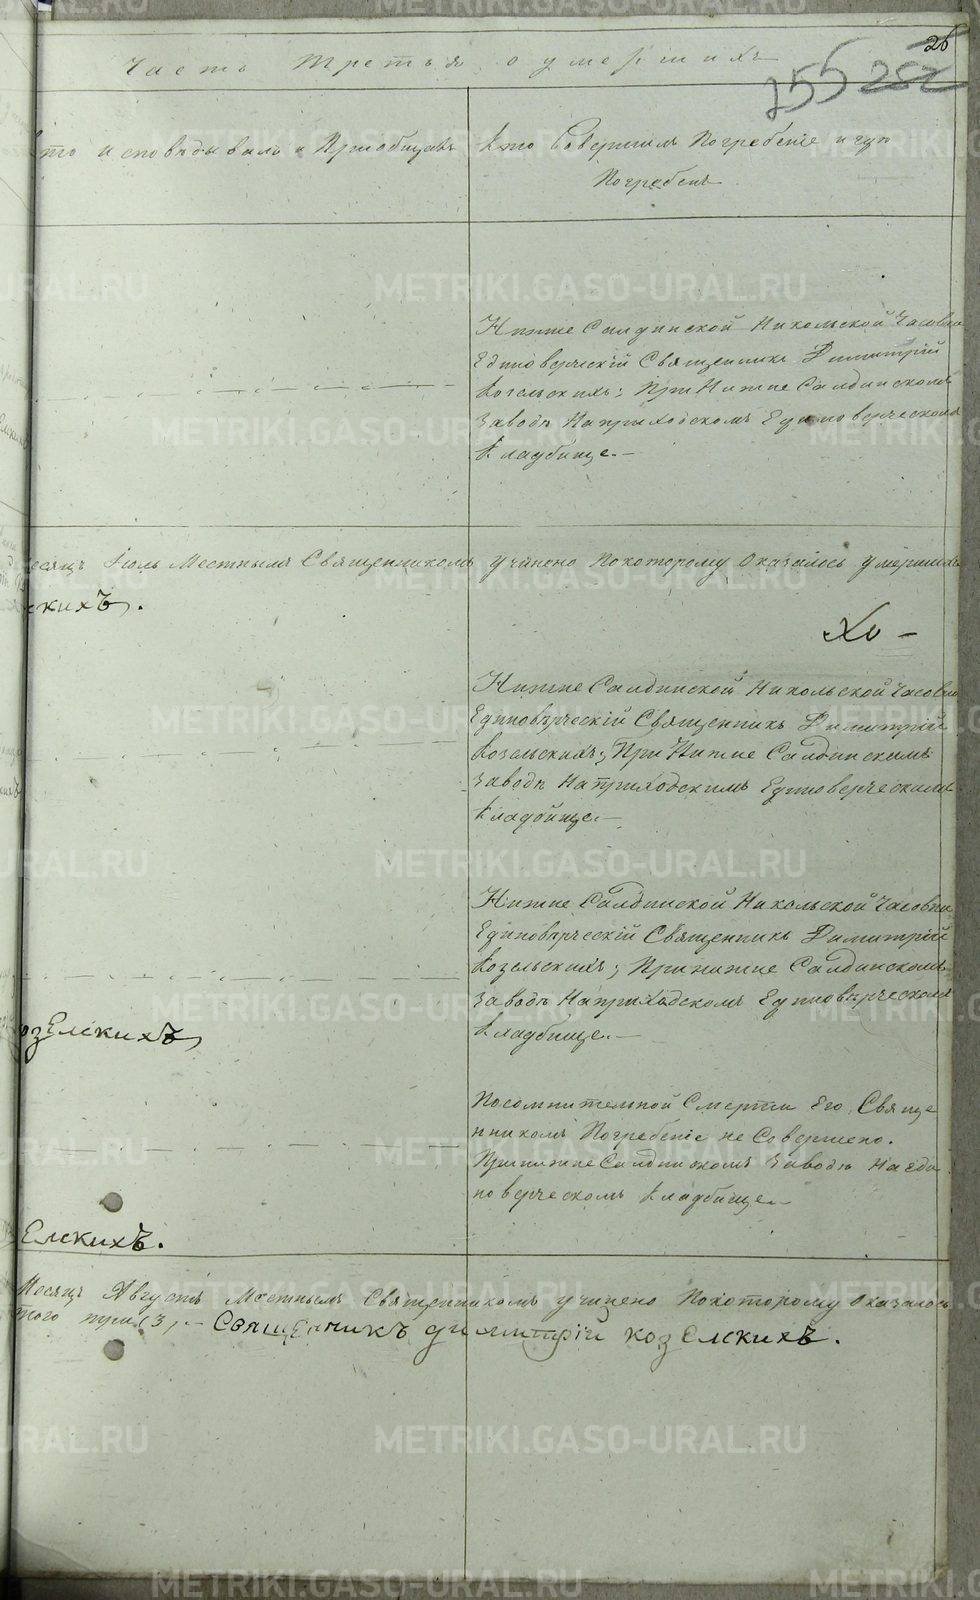 26
Часть третья о умершихъ
255 252
Кто исповѣдывалъ и Приобщалъ
Кто Совершалъ Погребеніе и гдѣ
Погребенъ
Нижне Салдинской Никольской Часовни
Единоверческій Священникъ Димитрій
Козельскихъ; При Нижне Салдинскомъ
Заводѣ На приходскомъ Единоверческомъ
Кладбище. –
Іюль Местнымъ Священникомъ Учинено Покоторому Оказалось умершихъ
скихъ.
Нижне Салдинской Никольской Часовни
Единовѣрческій Священникъ Димитрій
Козельскихъ; При Нижне Салдинскомъ
Заводѣ На приходскомъ Единоверческомъ
Кладбище. –
Нижне Салдинской Никольской Часовни
Единовѣрческій Священникъ Димитрій
Козельскихъ; При нижне Салдинскомъ
Заводѣ На приходскомъ Единоверческомъ
Кладбище. –
озЕлскихъ
По сомнительной Смерти Его Свяще
нникомъ Погребеніе не Совершено.
При нижне Салдинскомъ Заводѣ На еди
новерческомъ Кладбище. –
Елскихъ.
Месяцъ Августъ Местнымъ Священникомъ учинено Покоторому Оказалось
того три (3). – СвящЕнникъ димитрій козЕлскихъ.
METRIKI.GASO-URAL.RU